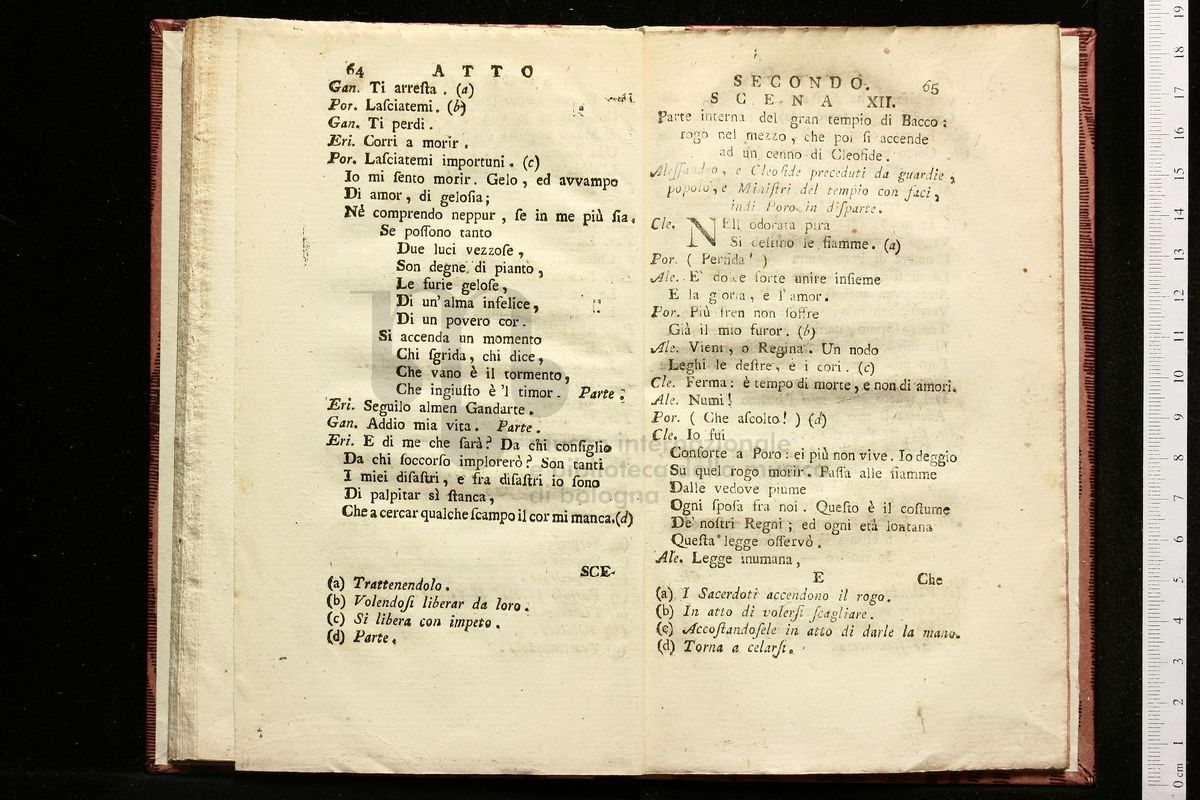 64 ATTO
Gan. Ti arreſta. (a)
Por. Laſciatemi. (b)
Gan. Ti perdi.
Eri. Corri a morir.
Por. Laſciatemi importuni. (c)
Io mi ſento morir. Gelo, ed avvampo
Di amor, di geloſia;
Nè comprendo neppur, ſe in me più ſia.
Se poſſono tanto
Due luci vezzoſe,
Son degne di pianto,
Le furie geloſe,
Di un' alma infelice,
Di un povero cor.
Si accenda un momento
Chi ſgrida, chi dice,
Che vano è il tormento,
Che ingiuſto è 'l timor. Parte.
Eri. Seguilo almen Gandarte.
Gan. Addio mia vita. Parte.
Eri. E di me che ſarà? Da chi conſiglio
Da chi ſoccorſo implorerò? Son tanti
I miei diſaſtri, e fra diſaſtri io ſono
Di palpitar sì ſtanca,
Che a cercar qualche ſcampo il cor mi manca. (d)
SCE-
(a) Trattenendolo.
(b) Volendoſi liberar da loro.
(c) Si libera con impeto.
(d) Parte.
SECONDO. 65
SCENA XII.
Parte interna del gran tempio di Bacco:
rogo nel mezzo, che poi ſi accende
ad un cenno di Cleofide.
Aleſſandro, e Cleofide preceduti da guardie,
popolo, e Miniſtri del tempio con faci,
indi Poro in diſparte.
Cle. NEll odorata pira
Si deſtino le fiamme. (a)
Por. ( Perfida! )
Ale. E' dolce ſorte unire inſieme
E la gloria, e l'amor.
Por. Più fren non ſoffre
Già il mio furor. (b)
Ale. Vieni, o Regina. Un nodo
Leghi le deſtre, e i cori. (c)
Cle. Ferma: è tempo di morte, e non di amori.
Ale. Numi!
Por. ( Che aſcolto! ) (d)
Cle. Io fui
Conſorte a Poro: ei più non vive. Io deggio
Su quel rogo morir. Paſſa alle fiamme
Dalle vedove piume
Ogni ſpoſa fra noi. Queſto è il coſtume
De' noſtri Regni; ed ogni età lontana
Queſta legge oſſervò.
Ale. Legge inumana,
E Che
(a) I Sacerdoti accendono il rogo.
(b) In atto di volerſi ſcagliare.
(c) Accoſtandoſele in atto di darle la mano.
(d) Torna a celarſi.
museo internazionale
e biblioteca della musica
di bologna
0 cm 1 2 3 4 5 6 7 8 9 10 11 12 13 14 15 16 17 18 19